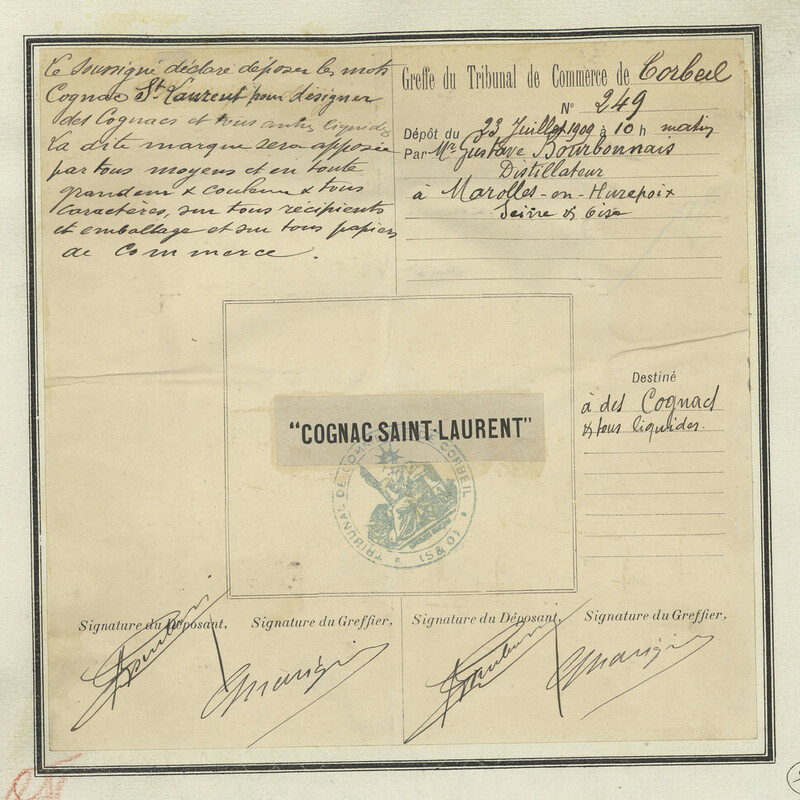 Le soussigné déclare déposer les mots
Cognac St Laurent pour désigner
des Cognacs et tous autres liquides
La dite marque sera apposée
par tous moyens et en toute
grandeur & couleur & tous
caractères, sur tous récipients
et emballage et sur tous papiers
de commerce.
Greffe du Tribunal de Commerce de Corbeil
N° 249
Dépôt du 23 Juillet 1909 à 10 h matin
Par Mr Gustave Bourbonnais
Distillateur
à Marolles-en-Hurepoix
Seine & Oise
Destiné
à des Cognacs
& tous liquides.
"COGNAC SAINT-LAURENT"
TRIBUNAL DE COMMERCE DE CORBEIL
(S&O)
Signature du Déposant. Signature du Greffier. Signature du Déposant. Signature du Greffier.